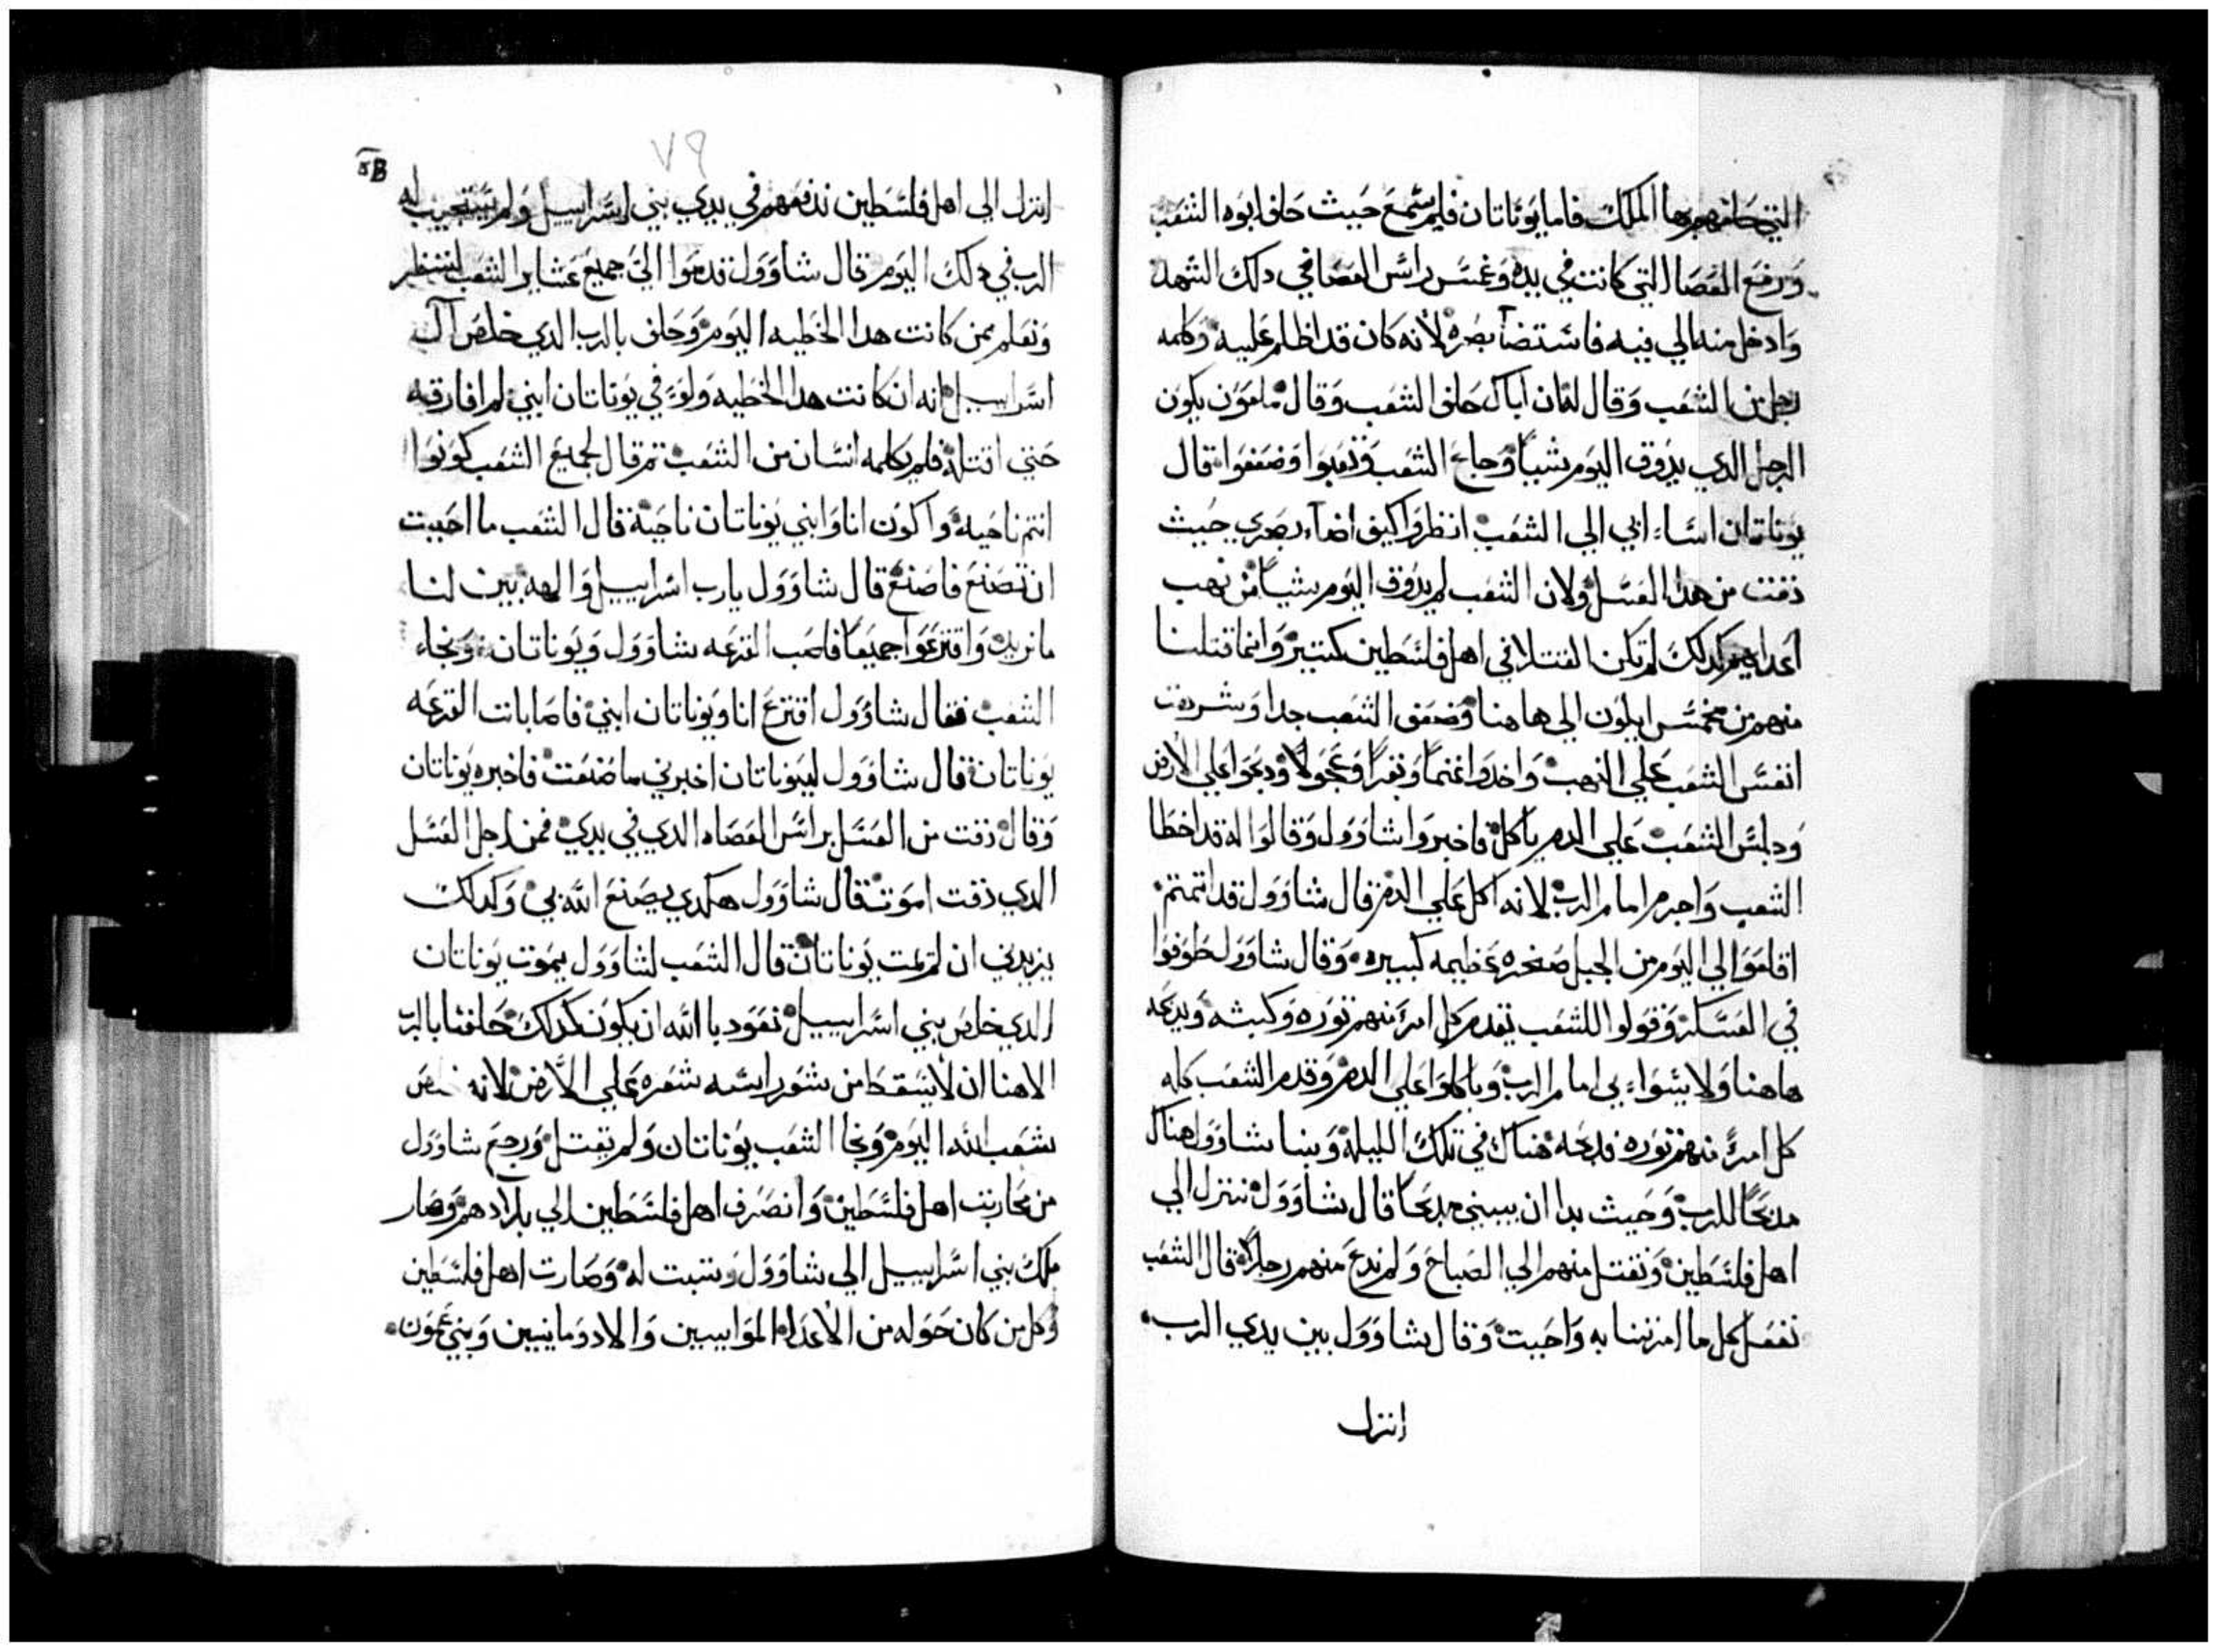 التي حلفهم بها الملك فاما يوناتان فلم يسمع حيث حلف ابوه الشعب
ورفع العصا التي كانت في يده وغمس راس العصا في دلك الشهد
وادخل منه الي فيه فاستضآ بصره لأنه كان قد اظلم عليه وكلمه
رجل من الشعب وقال له ان اباك حلف الشعب وقال ملعون يكون
الرجل الدي يدوق اليوم شياً وجاع الشعب وتعبوا وضعفوا قال
يوناتان اساء ابي الي الشعب انظروا كيف اضآء بصري حيث
دقت من هدا العسل ولان الشعب لم يدوق اليوم شياً من نهب
أعدايهم كدلك لم تكن القتلا في اهل فلسطين كتير وانما قتلنا
منهم من مخمس ايلون الي هاهنا وضعف الشعب جدا وشرهت
انفس الشعب علي النهب واخدوا غنماً وبقراً وعجولاً ودبحوا علي الأرض
وجلس الشعب علي الدم ياكل فاخبروا شاوول وقالوا له قد اخطا
الشعب واجرم امام الرب لانه اكل علي الدم قال شاوول قد اتمتم
اقلموا الي اليوم من الجبل صخره عظيمه كبيره وقال شاوول طوفوا
في العسكر وقولوا للشعب يقدم كل امرء منهم توره وكبشه ويدبحه
هاهنا ولا يسواء بي امام الرب وياكلوا علي الدم وقدم الشعب كله
كل امرءٍ منهم توره فدبحه هناك في تلك الليله وبنا شاوول هناك
مدبحاً للرب وحيث بدا ان يبني مدبحاً قال شاوول ننزل الي
اهل فلسطين ونقتل منهم الي الصباح ولم ندع منهم رجلاً قال الشعب
نفعل كل ما امرتنا به واحببت وقال شاوول بين يدي الرب
انزل
٧٩
انزل الي اهل فلسطين ندفعهم في يدي بني اسراييل ولم يستجيب له
الرب في دلك اليوم قال شاوول قدموا اليّ جميع عشاير الشعب لننظر
ونعلم بمن كانت هدا الخطيه اليوم وحلف بالرب الدي خلص آل
اسراييل انه ان كانت هدا الخطيه ولو في يوناتان ابني لم افارقه
حتي اقتله فلم يكلمه انسان من الشعب تم قال لجميع الشعب كونوا
انتم ناحيه واكون انا وابني يوناتان ناحية قال الشعب ما احببت
ان تصنع فاصنع قال شاوول يارب اسراييل والهه بين لنا
ما نريد واقترعوا جميعاً فاصب القرعه شاوول ويوناتان ونجاء
الشعب فقال شاوول اقترع انا ويوناتان ابني فاصابات القرعه
يوناتان قال شاوول ليوناتان اخبرني ما صنعت فاخبره يوناتان
وقال دقت من العسل براس العصاه الدي في يدي فمن اجل العسل
الدي دقت اموت قال شاوول هكدي يصنع الله بي وكدلك
يزيدني ان لم يمت يوناتان قال الشعب لشاوول يموت يوناتان
الدي خلص بني اسراييل نعود بالله ان يكون كدلك حلفنا بالرب
الاهنا ان لا يسقط من شعر راسه شعره علي الأرض لانه
شعب الله اليوم ونجا الشعب يوناتان ولم يقتل ورجع شاوول
من محاربت اهل فلسطين وانصرف اهل فلسطين الي بلادهم وصار
ملك بني اسراييل الي شاوول وتبت له وصارت اهل فلسطين
وكل من كان حوله من الأعداء الموابيين والادومانيين وبني عمون